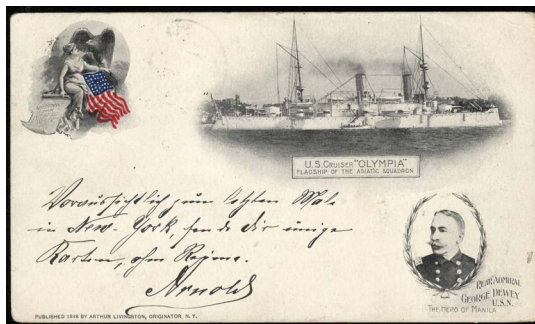 U.S. CRUISER "OLYMPIA"
FLAGSHIP OF THE ASIATIC SQUADRON
Voraussichtlich zum letzten Male
in New-York, sende dir einige
Karten, ohne
Arnold
REAR ADMIRAL
GEORGE DEWEY
U.S.N.
THE HERO OF MANILA
PUBLISHED 1898 BY ARTHUR LIVINGSTON, ORIGINATOR, N. Y.